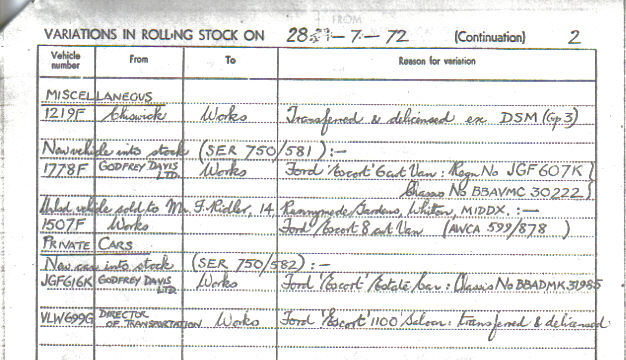 FROM
VARIATIONS IN ROLLING STOCK ON 28 - 7 - 72 (Continuation) 2
Vehicle number From To Reason for variation
MISCELLANEOUS
1219F Chiswick Works Transferred & delicensed ex DSM (Gp 3)
New vehicle into stock (SER 750/581) :-
1778F GODFREY DAVIS LTD. Works Ford 'Escort' 6cwt Van : Regn No JGF 607K
Chassis No BBAVMC 30222
Used vehicle sold to Mr. F. Ridler, 14, Runnymede Gardens, Whitton, MIDDX. :-
1507F Works Ford 'Escort' 8cwt Van (AWCA 599/878)
PRIVATE CARS
New cars into stock (SER 750/582) :-
JGF616K GODFREY DAVIS LTD. Works Ford 'Escort' Estate Car : Chassis No BBADMK 31985
VLW699G DIRECTOR OF TRANSPORTATION Works Ford 'Escort' 1100 Saloon : transferred & delicensed.